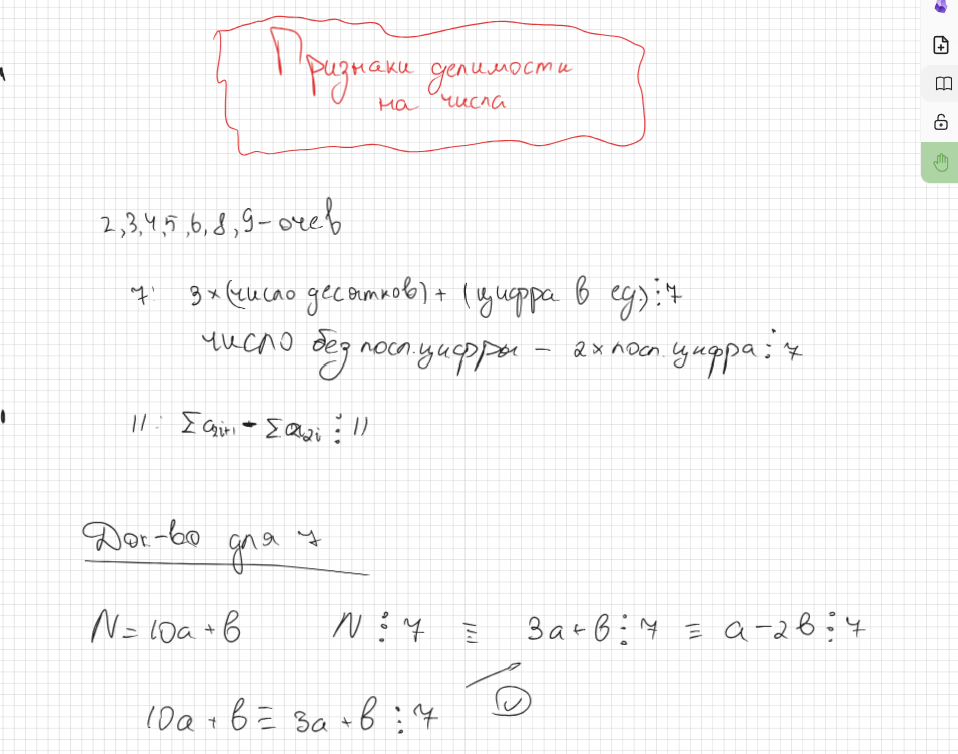 Признаки делимости
на числа
2,3,4,5,6,8,9 - очев
7: 3×(число десятков) + (цифра в ед.) ⋮ 7
число без посл. цифры - 2×посл. цифра ⋮ 7
11: Σa₂ᵢ₊₁ - Σa₂ᵢ ⋮ 11
Док-во для 7
N = 10a + b N ⋮ 7 ≡ 3a + b ⋮ 7 ≡ a - 2b ⋮ 7
10a + b ≡ 3a + b ⋮ 7